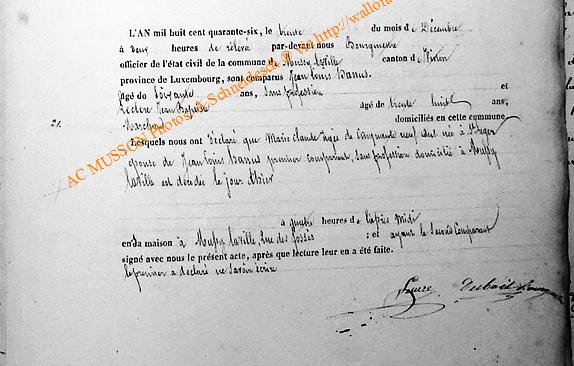 L'AN mil huit cent quarante-six, le trente du mois de Décembre
à deux heures de relevé par-devant nous Bourgmestre
officier de l'état civil de la commune de Mussy laville canton de Virton
province de Luxembourg, sont comparus Jean Louis Banus
âgé de Soixante ans, Sans profession et
Leclere Jean Baptiste âgé de trente huit ans,
21. Marchand domiciliés en cette commune
Lesquels nous ont déclaré que Marie claude âgée de Cinquante neuf ans née à
épouse de Jean Louis Banus premier comparant, Sans profession domiciliée à Mussy
laville est décédée le jour d'hier
à quatre heures de l'après Midi
en Sa maison à Mussy laville, Rue des fossés : et ayant le Second Comparant
signé avec nous le présent acte, après que lecture leur en a été faite.
le premier a déclaré ne Savoir écrire
AC MUSSON Photos A. Schneidesch @ via http://wallon